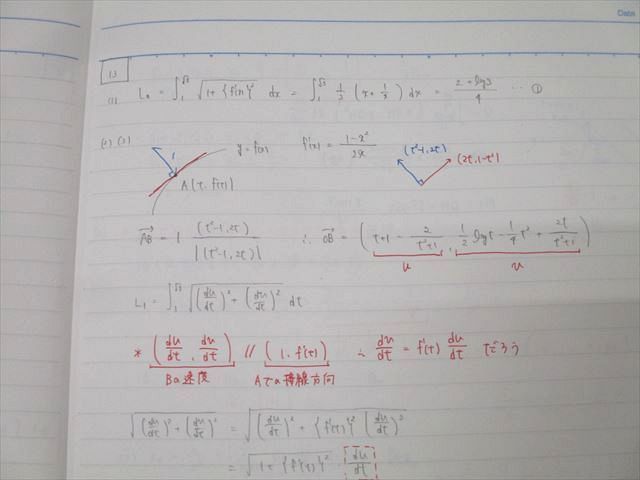 Date
13
(1) L₀ = ∫₁^√3 √(1+{f'(x)}²) dx = ∫₁^√3 1/2 (x+1/x) dx = (2+log3)/4 … ①
(2)(3) 1 y=f(x) f'(x) = (1-x²)/2x (t²-1, 2t) (2t, 1-t²)
A(t, f(t))
AB→ = 1 (t²-1, 2t)/|(t²-1, 2t)| ∴ OB→ = (t+1 - 2/(t²+1), 1/2 logt - 1/4 t² + 2t/(t²+1))
u v
L₁ = ∫₁^√3 √((du/dt)²+(dv/dt)²) dt
* (du/dt, dv/dt) // (1, f'(t)) ∴ dv/dt = f'(t) du/dt である
Bの速度 Aでの接線方向
√((du/dt)²+(dv/dt)²) = √((du/dt)²+{f'(t)}²(du/dt)²)
= √(1+{f'(t)}²) · du/dt